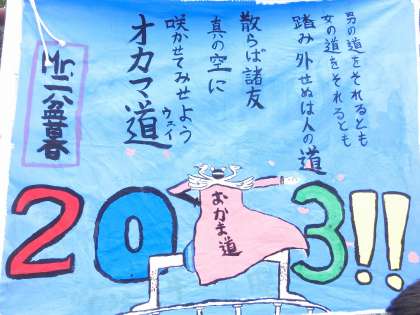 男の道をそれるとも
女の道をそれるとも
踏み外せぬは人の道
散らば諸友
真の空に
咲かせてみせよう
オカマ道
ウェイ
Mr.二盆暮
おかま道
2013!!